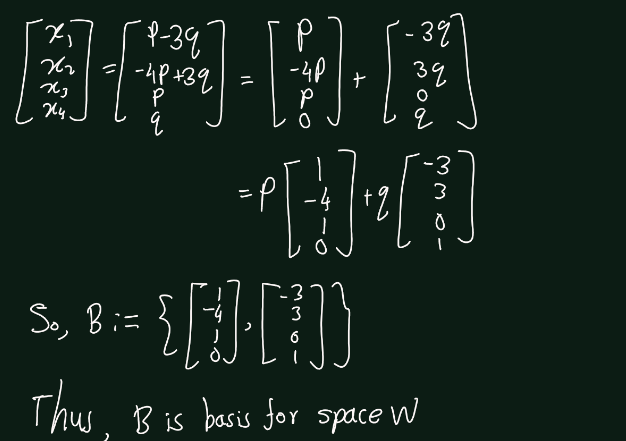 [x₁ x₂ x₃ x₄] = [p-3q -4p+3q p q] = [p -4p p 0] + [-3q 3q 0 q]
= p [1 -4 1 0] + q [-3 3 0 1]
So, B := { [1 -4 1 0], [-3 3 0 1] }
Thus, B is basis for space W